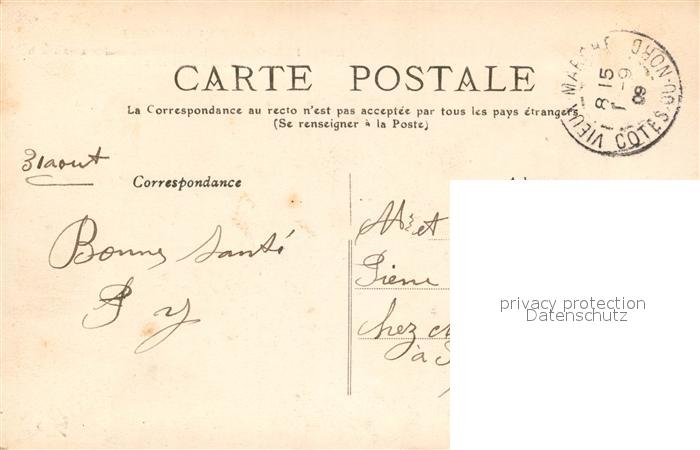 CARTE POSTALE
La Correspondance au recto n'est pas acceptée par tous les pays étrangers
(Se renseigner à la Poste)
VIEUX-MARCHÉ CÔTES-DU-NORD
8 15
1 -9
09
31 aout
Correspondance
Bonne santé
P Y
Mr et
Pierre
chez
à
privacy protection
Datenschutz